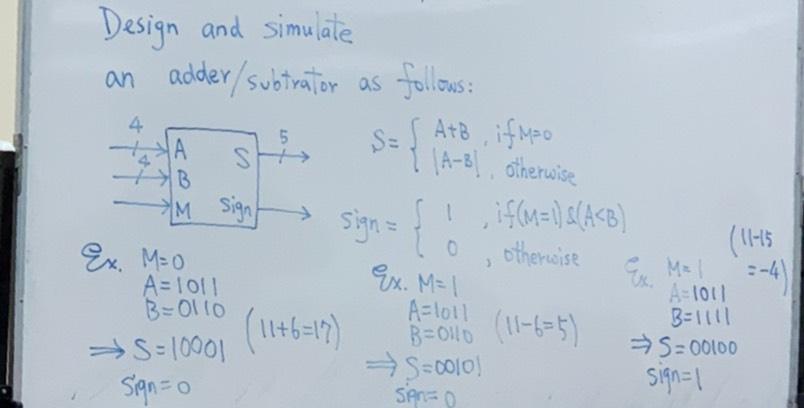 Design and simulate
an adder/subtrator as follows:
4
4
A
B
M
S
Sign
5
S= { A+B , if M=0
|A-B| , otherwise
Sign = { 1 , if(M=1)&(A<B)
0 , otherwise
Ex. M=0
A=1011
B=0110
(11+6=17)
⇒ S=10001
Sign=0
Ex. M=1
A=1011
B=0110
(11-6=5)
⇒ S=00101
Sign=0
(11-15
=-4)
Ex. M=1
A=1011
B=1111
⇒ S=00100
Sign=1